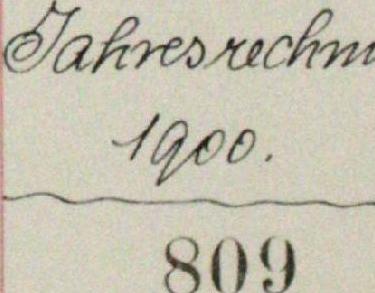 Jahresrechn
1900.
809